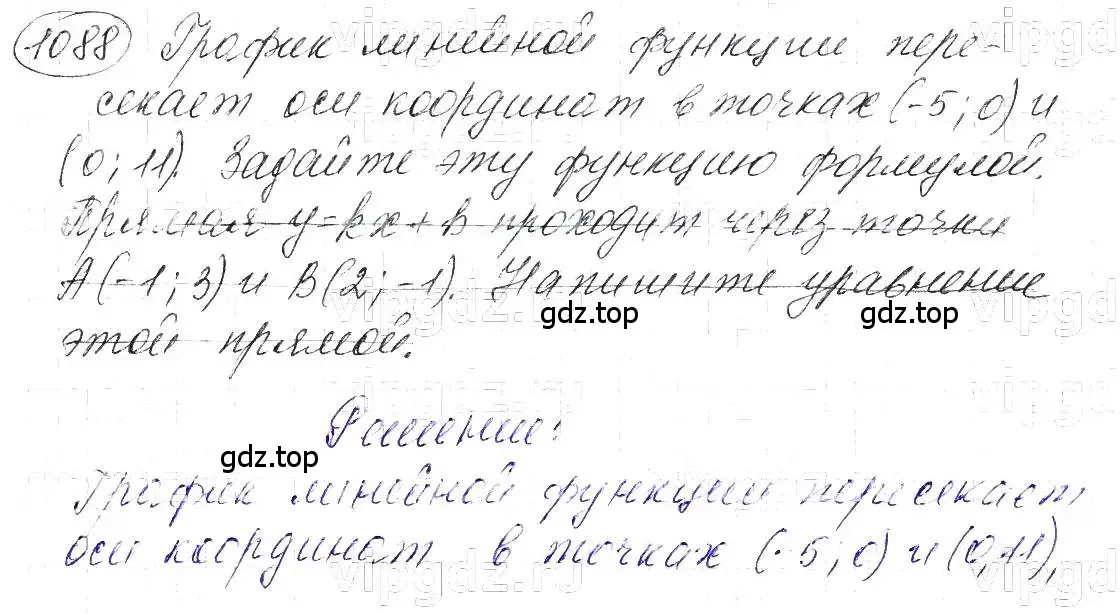 1088 График линейной функции пере-
секает оси координат в точках (-5; 0) и
(0; 11). Задайте эту функцию формулой.
Прямая y=kx+b проходит через точки
A(-1; 3) и B(2; -1). Напишите уравнение
gdz.top gdz.top
этой прямой.
Решение:
gdz.top
График линейной функции пересекает
оси координат в точках (-5; 0) и (0, 11),